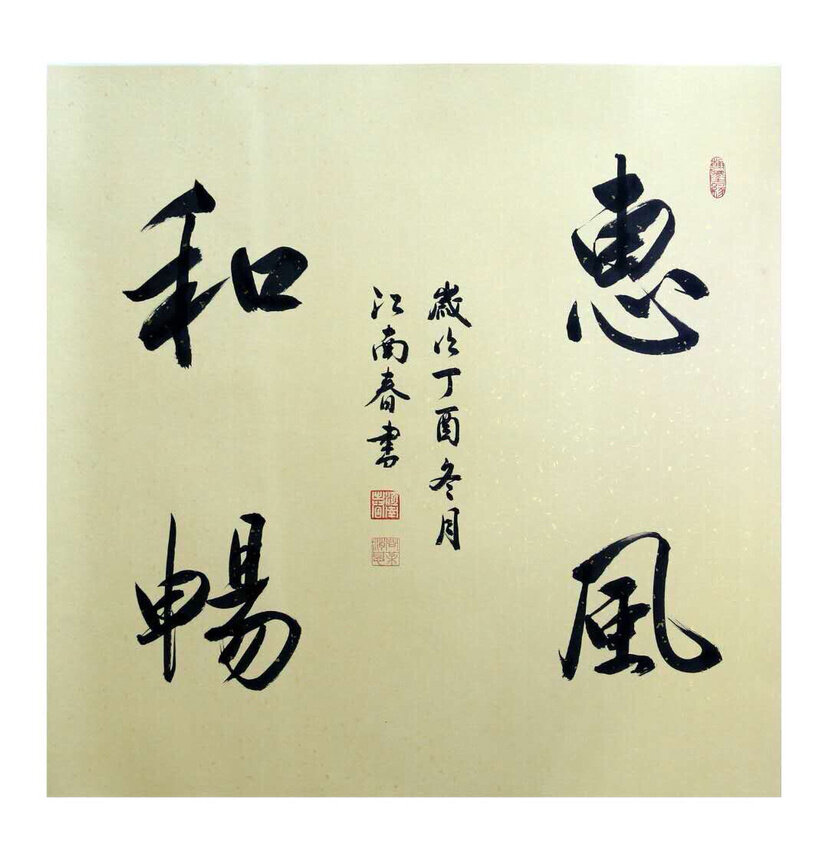 惠風
和暢
歲次丁酉冬月
江南春書